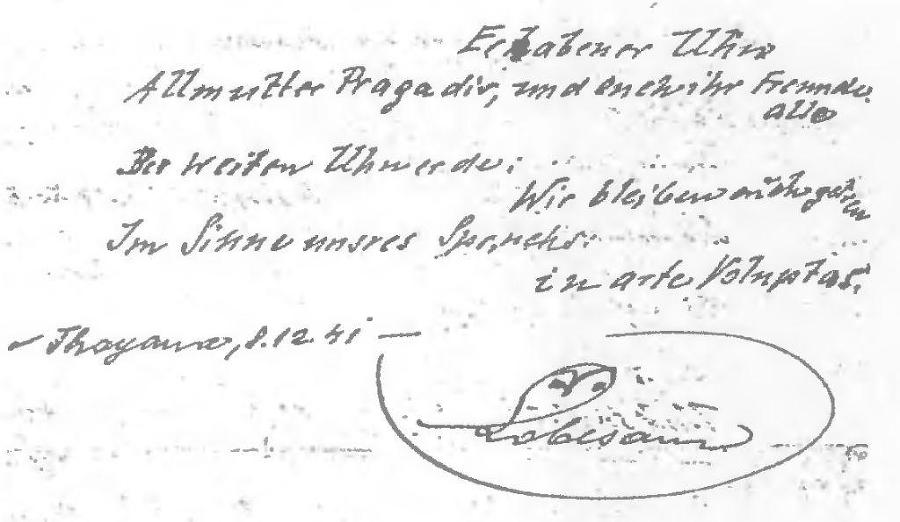 Erhabener Uhu
Allmutter Praga dir, und euch ihr Freunde
alle
Der weiten Uhuerde:
Wir bleiben euch getreu
Im Sinne unsres Spruchs:
in arte Voluptas!
8.12.41 —
Lobesam